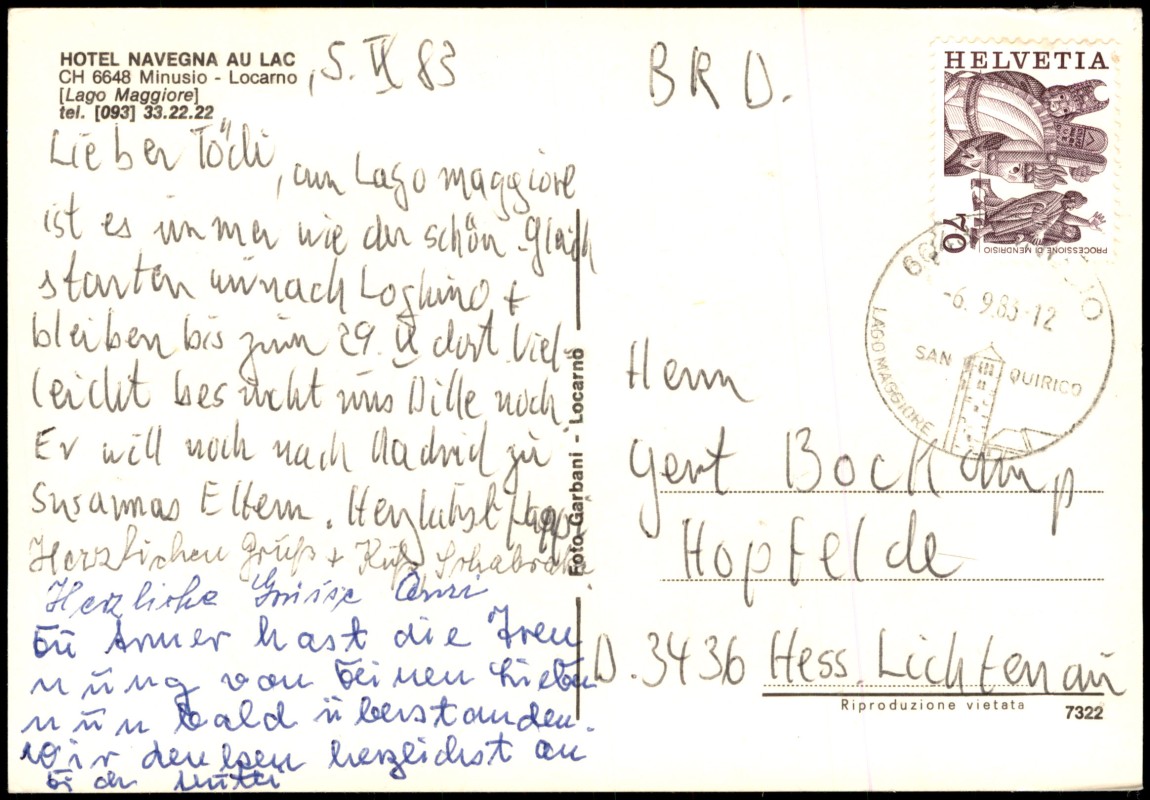 HOTEL NAVEGNA AU LAC
CH 6648 Minusio - Locarno
[Lago Maggiore]
tel. [093] 33.22.22
, 5. IX 83
Lieber Tödi
, am Lago maggiore
ist es immer wieder schön. Gleich
starten wir nach Loghino +
bleiben bis zum 29. IX dort. Viel-
leicht besucht uns Dille noch
Er will noch nach Madrid zu
Susannas Eltern. Herzlichst Pappi
Herzlichen Gruß + Kuß
Herzliche Grüsse
Du Armer hast die Tren
nung von Deinen Lieben
nun bald überstanden.
Wir denken herzlichst an
Dich Mutti
Foto Garbani - Locarno
BRD.
HELVETIA
PROCESSIONE DI MENDRISIO
40
-6. 9.83-12
LAGO MAGGIORE
SAN QUIRICO
Herrn
Gert Bockamp
Hopfelde
D. 3436 Hess. Lichtenau
Riproduzione vietata
7322